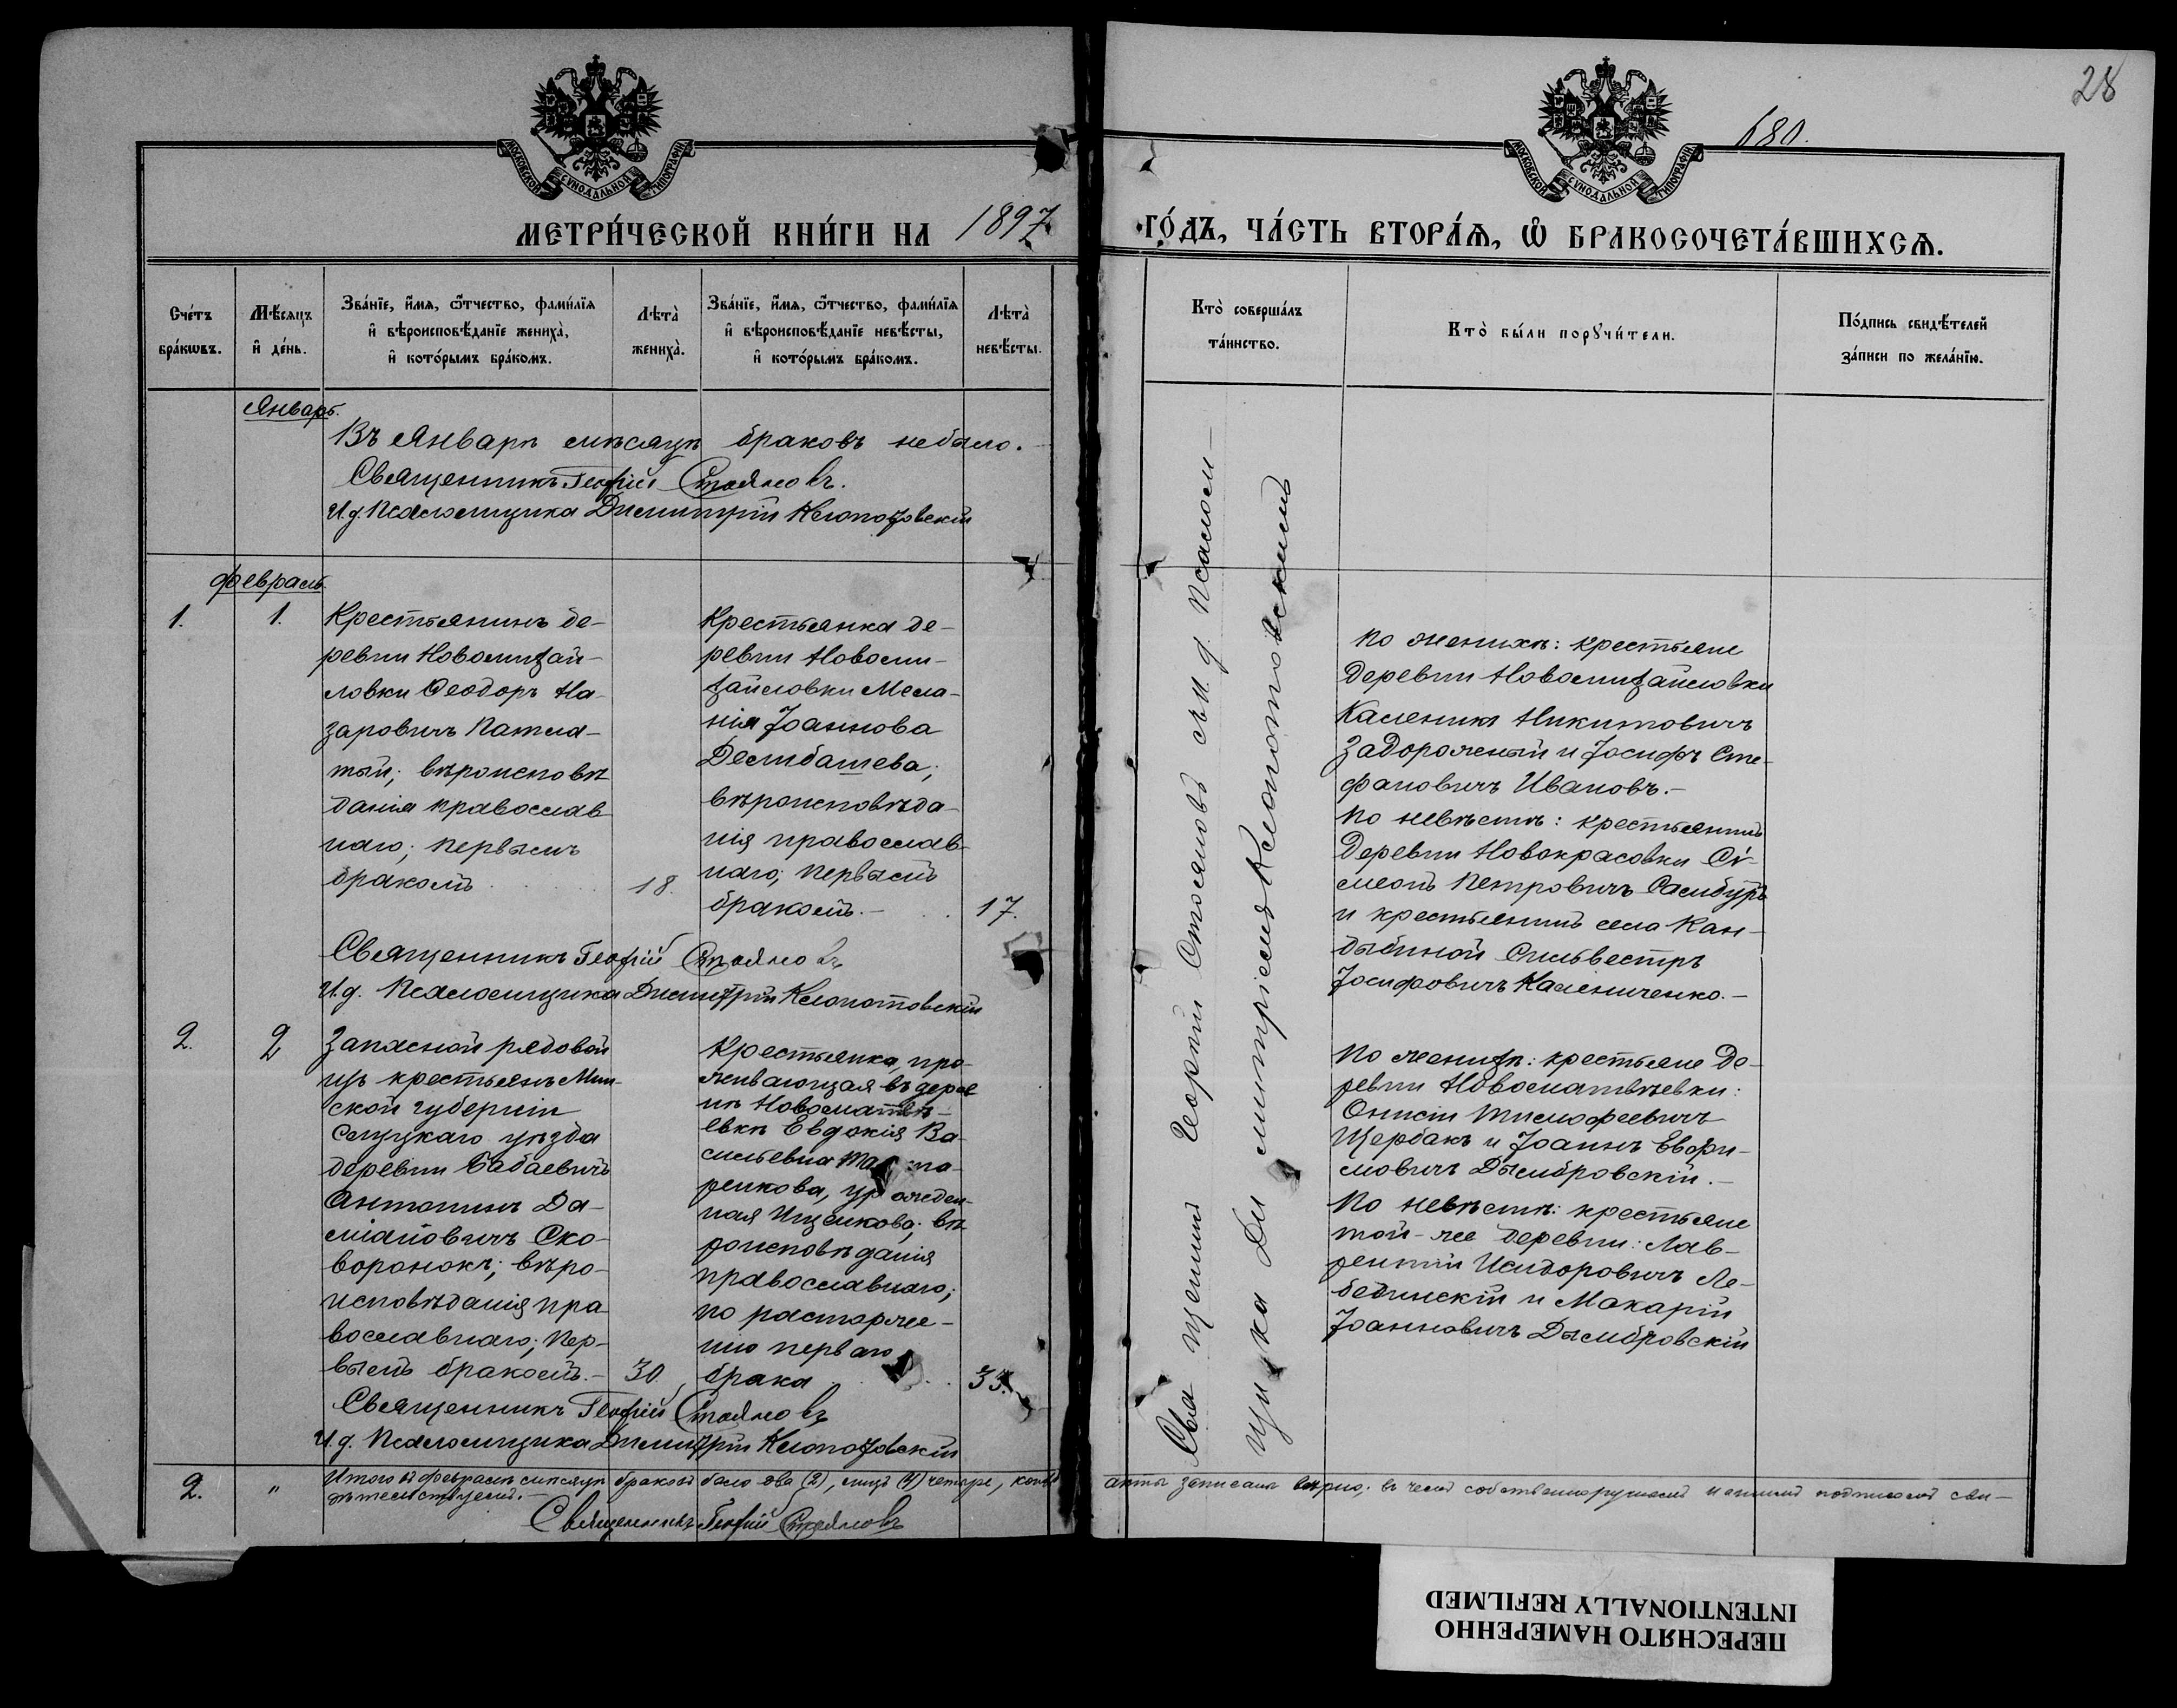 28
680.
МОСКОВСКОЙ СѴНОДАЛЬНОЙ ТИПОГРАФІИ
МОСКОВСКОЙ СѴНОДАЛЬНОЙ ТИПОГРАФІИ
МЕТРИ́ЧЕСКОЙ КНИ́ГИ НА 1897
ГО́ДЪ, ЧА́СТЬ ВТОРА́Ѧ, Ѽ БРАКОСОЧЕТА́ВШИХСѦ.
Сче́тъ бра́кѡвъ.
Мѣ́сяцъ и де́нь.
Зва́нїе, и́мя, ѻ́тчество, фами́лїя
и вѣроисповѣ́данїе жениха̀,
и кото́рымъ бра́комъ.
Лѣта̀ жениха̀.
Зва́нїе, и́мя, ѻ́тчество, фами́лїя
и вѣроисповѣ́данїе невѣ́сты,
и кото́рымъ бра́комъ.
Лѣта̀ невѣ́сты.
Кто̀ соверша́лъ
та́инство.
Кто̀ бы́ли порꙋчи́тели.
По́дпись свидѣ́телей
за́писи по жела́нїю.
Январь.
Въ Январѣ мѣсяцѣ браковъ небыло.
Священникъ Георгій Стояновъ.
И.д. Псаломщика Димитрій Клопотовскій
Февраль.
1.
1.
Крестьянинъ де-
ревни Новомихай-
ловки Ѳеодоръ На-
заровичъ Патла-
тый; вѣроисповѣ
данія православ
наго; первымъ
бракомъ
18.
Крестьянка де-
ревни Новоми-
хайловки Мела-
нія Іоаннова
Делибашева;
вѣроисповѣда-
нія православ-
наго; первымъ
бракомъ.-
17.
Священникъ Георгій Стояновъ
И.д. Псаломщика Димитрій Клопотовскій
По женихѣ: крестьяне
деревни Новомихайловки
Каленикъ Никитовичъ
Задорожный и Іосифъ Сте-
фановичъ Ивановъ.-
По невѣстѣ: крестьянинъ
деревни Новокрасовки Сѵ-
меонъ Петровичъ Самбуръ
и крестьянинъ села Кан-
дыбиной Сильвестръ
Іосифовичъ Калениченко.-
2.
2
Запасной рядовой
изъ крестьянъ Мин-
ской губерніи
Слуцкаго уѣзда
деревни Бабаевичъ
Антонинъ Да-
міановичъ Ско-
воронокъ; вѣро-
исповѣданія пра
вославнаго; пер-
вымъ бракомъ.-
30.
Крестьянка, про-
живающая въ дерев
нѣ Новоматвѣ-
евкѣ Евдокія Ва-
сильевна
ренкова, урожден-
ная Ищенкова; вѣ-
роисповѣданія
православнаго;
по расторже-
нію перваго
брака
33.
Священникъ Георгій Стояновъ
И.д. Псаломщика Димитрій Клопотовскій
По женихѣ: крестьяне де-
ревни Новоматвѣевки:
Онисій Тимофеевичъ
Щербакъ и Іоаннъ Евфи-
мовичъ Дымбровскій.-
По невѣстѣ: крестьяне
той-же деревни: Лав-
рентій Исидоровичъ Ле-
бединскій и Макарій
Іоанновичъ Дымбровскій
Священникъ Георгій Стояновъ съ И. д. Псалом-
щика Димитріемъ Клопотовскимъ
2.
"
Итого въ февралѣ мѣсяцѣ браковъ было два (2), лицъ (4) четыре, акты записаны вѣрно; въ чемъ собственноручнымъ нашимъ подписомъ сви-
дѣтельствуемъ.-
Священникъ Георгій Стояновъ
ПЕРЕСНЯТО НАМЕРЕННО
INTENTIONALLY REFILMED